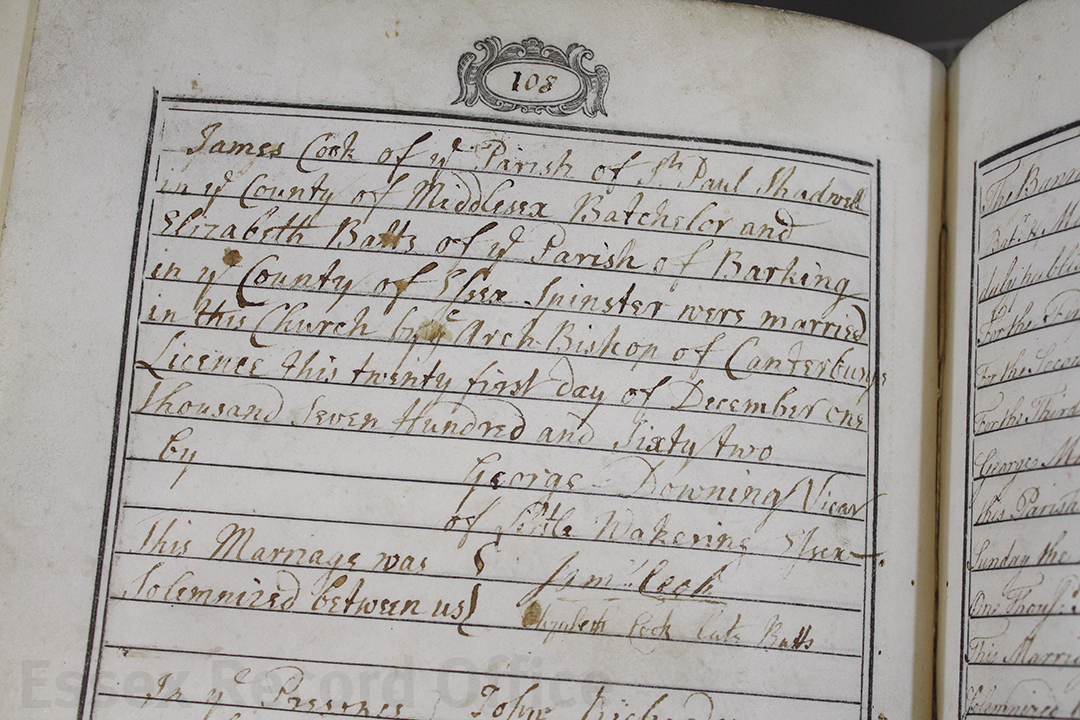 108
James Cook of yͤ Parish of Sᵗ Paul Shadwell
in yͤ County of Middlesex Batchelor and
Elizabeth Batts of yͤ Parish of Barking
in yͤ County of Essex Spinster were married
in this Church by yͤ Arch-Bishop of Canterburys
Licence this twenty first day of December one
thousand Seven Hundred and Sixty two
by George Downing Vicar
of Little Wakering Essex
This Marriage was
Solemnized between us
Jamˢ Cook
Elizabeth Cook late Batts
In yͤ Presence John
The Bann
Batʳ & Ma
duly publi
For the Fir
For the Second
For the Third
George
this Parish
Sunday the
One Thous
This Marri
Solemnized
Essex Record Office